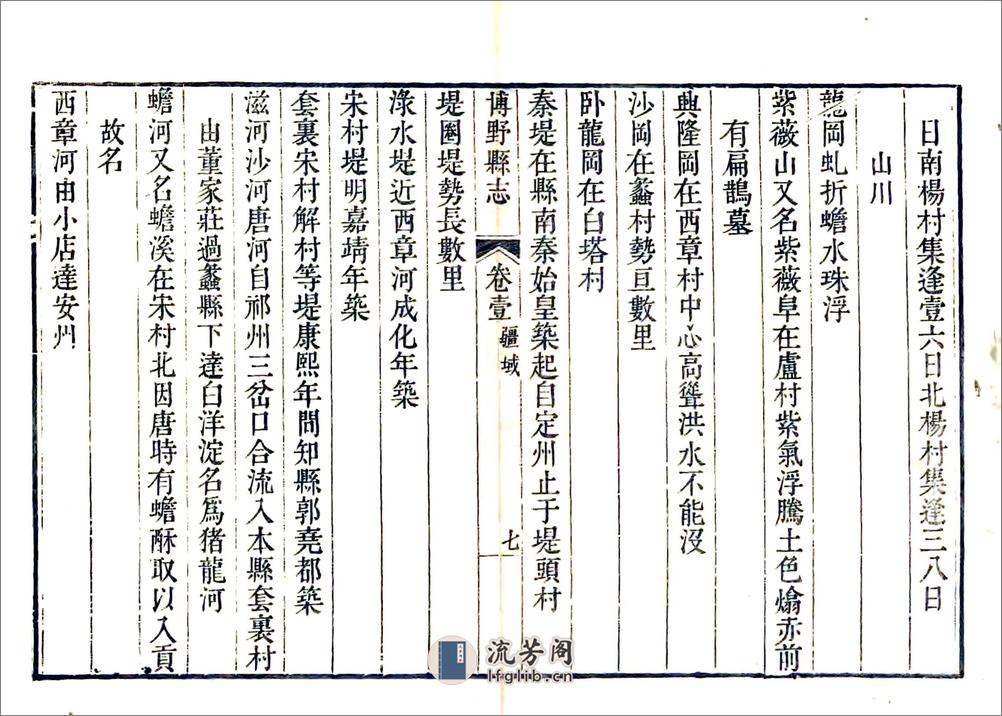 日南楊村集逢壹六日北楊村集逢三八日
山川
龍岡虬折蟾水珠浮
紫薇山又名紫薇阜在盧村紫氣浮騰土色爚赤前
有扁鵲墓
興隆岡在西章村中心高聳洪水不能沒
沙岡在蠡村勢亘數里
卧龍岡在白塔村
秦堤在縣南秦始皇築起自定州止于堤頭村
博野縣志
卷壹
疆域
七
堤圏堤勢長數里
淥水堤近西章河成化年築
宋村堤明嘉靖年築
套裏宋村解村等堤康熙年間知縣郭堯都築
滋河沙河唐河自祁州三岔口合流入本縣套裏村
由董家莊過蠡縣下達白洋淀名為猪龍河
蟾河又名蟾溪在宋村北因唐時有蟾酥取以入貢
故名
西章河由小店達安州
流芳阁
lfglib.cn